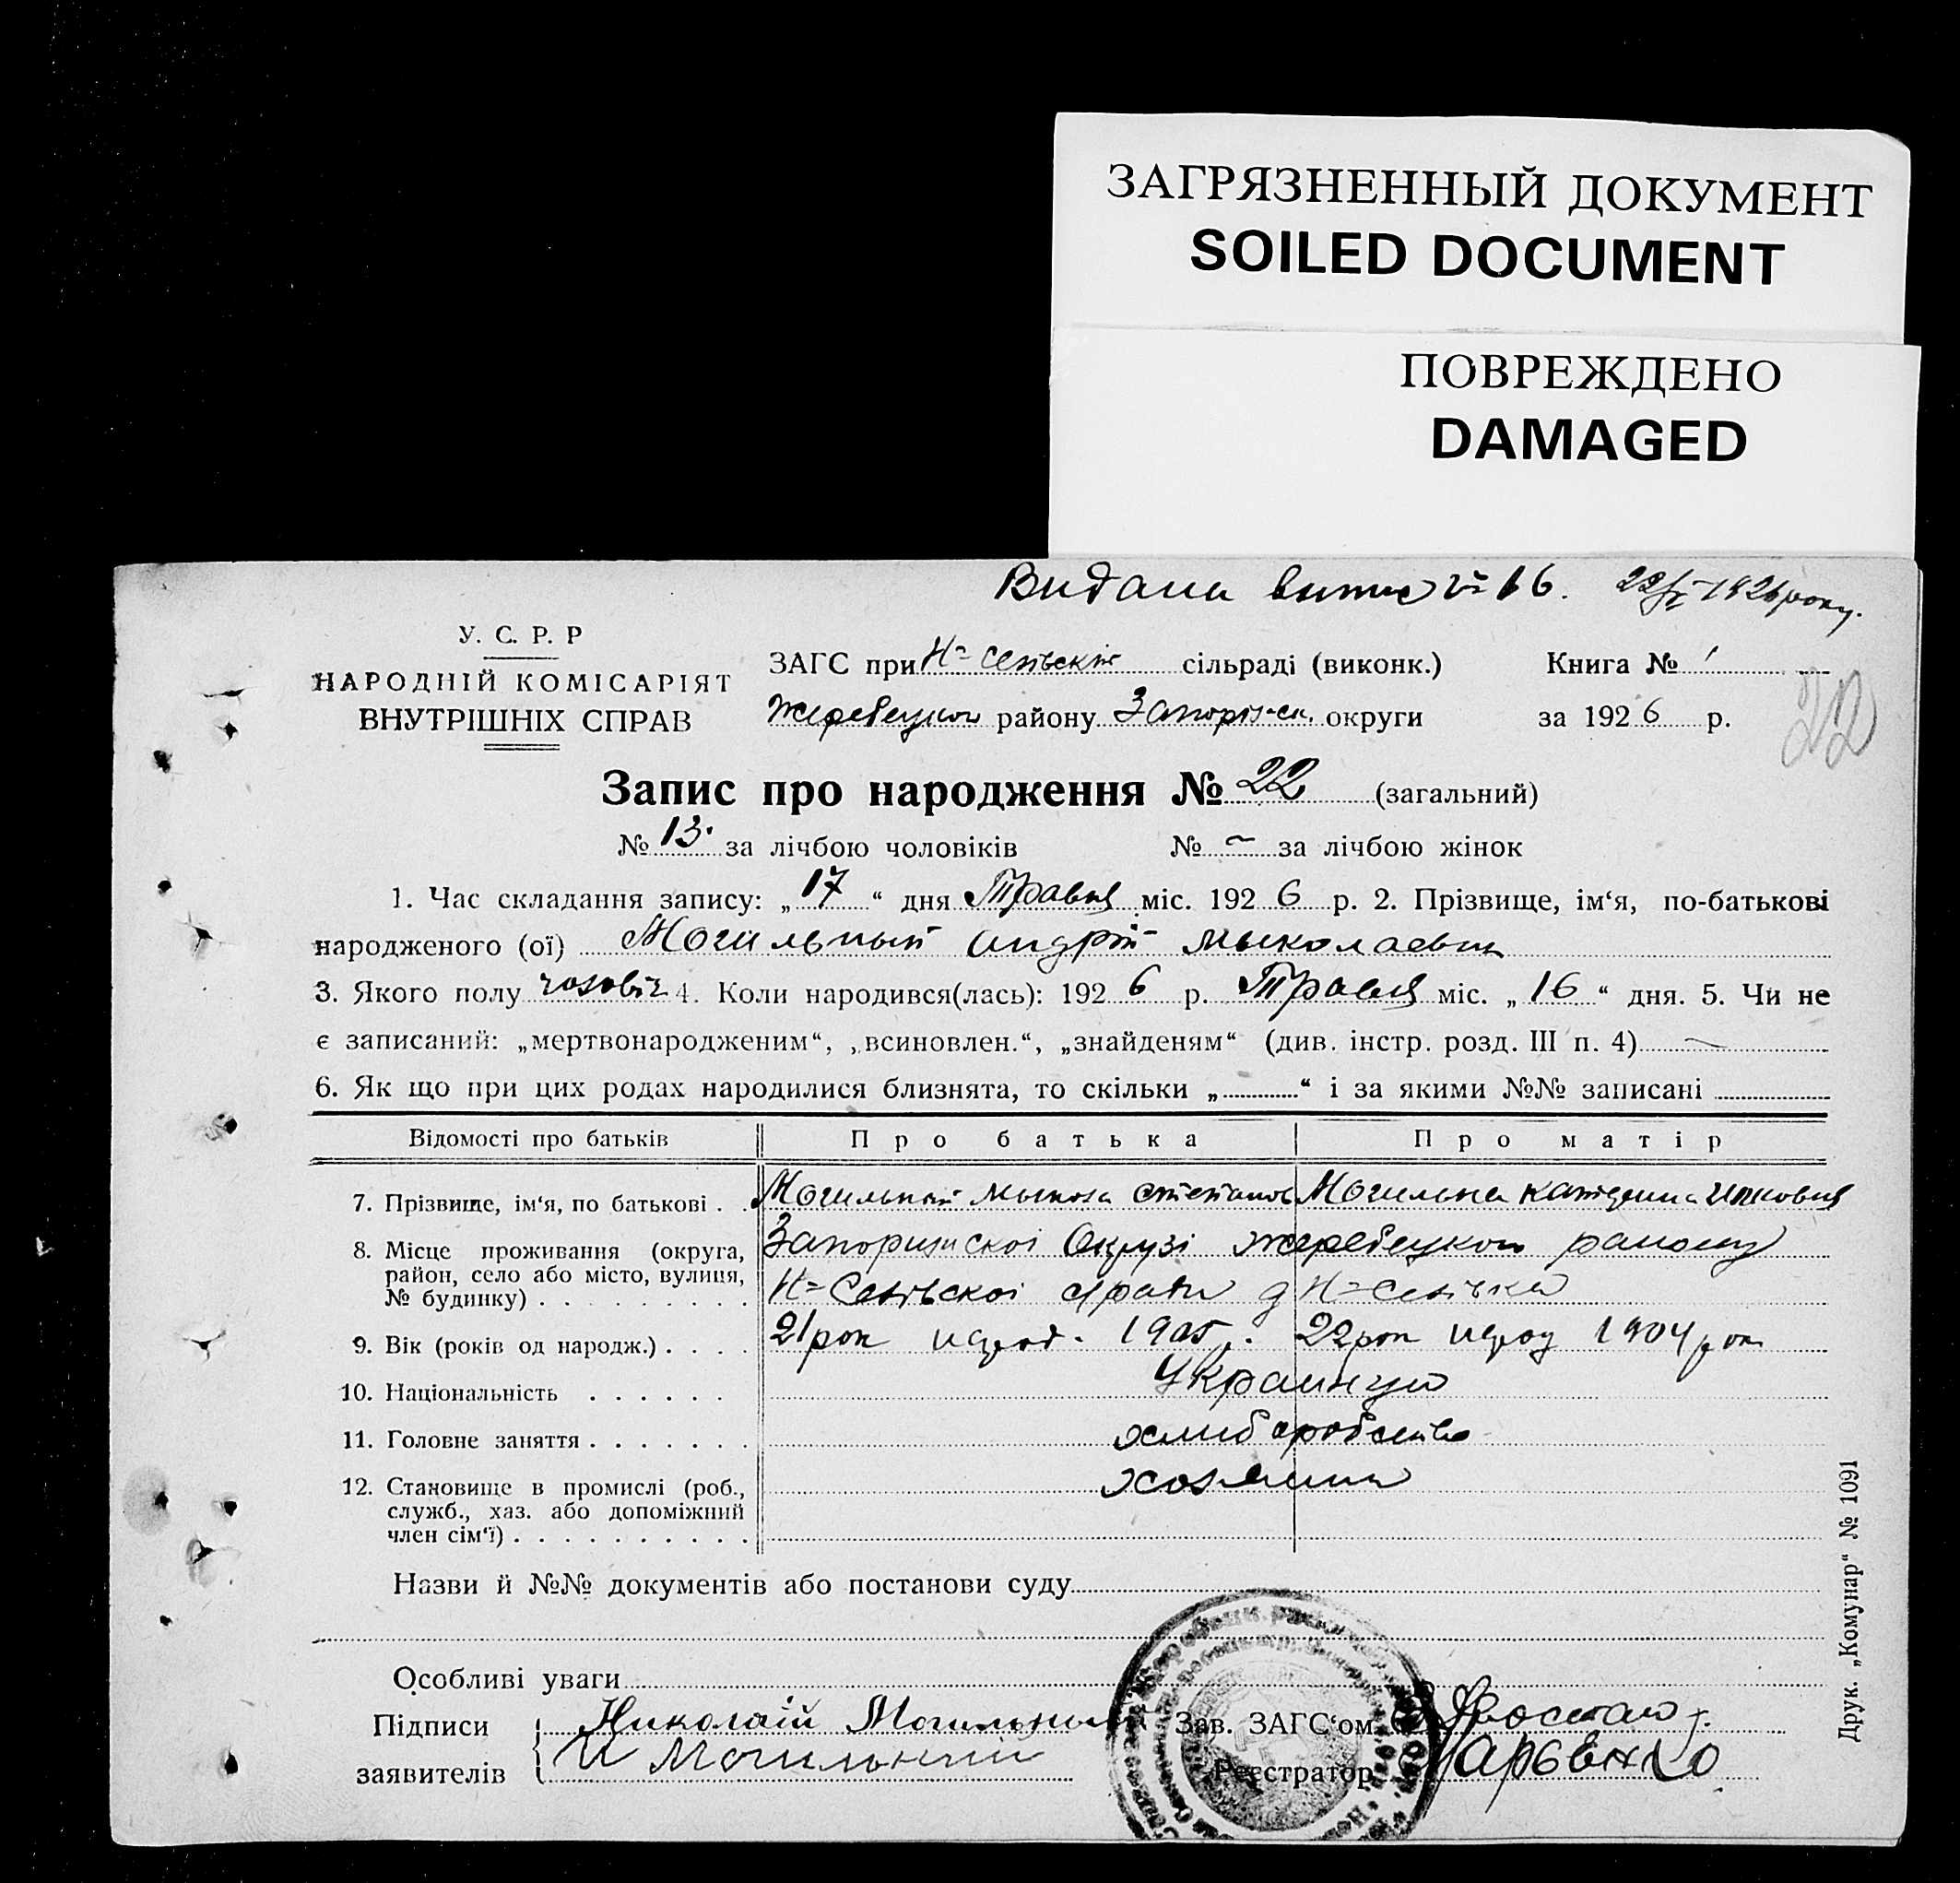 ЗАГРЯЗНЕННЫЙ ДОКУМЕНТ
SOILED DOCUMENT
ПОВРЕЖДЕНО
DAMAGED
Видана №16. 1926 року.
У. С. Р. Р
НАРОДНІЙ КОМІСАРІЯТ
ВНУТРІШНІХ СПРАВ
ЗАГС при сільраді (виконк.) Книга № 1
Жеребецкого району Запоріз-ск. округи за 1926 р.
22
Запис про народження № 22 (загальний)
№ 13. за лічбою чоловіків № – за лічбою жінок
1. Час складання запису: „17“ дня Травня міс. 1926 р. 2. Прізвище, ім‘я, по-батькові
народженого (ої) Могильный Андрій Мыколаевич
3. Якого полу чоловіч 4. Коли народився(лась): 1926 р. Травня міс. „16“ дня. 5. Чи не
є записаний: „мертвонародженим“, „всиновлен.“, „знайденям“ (див. інстр. розд. III п. 4) –
6. Як що при цих родах народилися близнята, то скільки „ “ і за якими №№ записані
Відомості про батьків Про батька Про матір
7. Прізвище, ім‘я, по батькові . . Могильний Мыкола Степанов Могильна Катерина
8. Місце проживання (округа, район, село або місто, вулиця, № будинку) . . . . . . . . . Запоризскоі Окрузі Жеребецкого району
9. Вік (років од народж.) . . . . 21 рок народ. 1905 р. 22 рок народ 1904 рок
10. Національність . . . . . . Украинци
11. Головне заняття . . . . . . . хлиборобство
12. Становище в промислі (роб., служб., хаз. або допоміжний член сім‘ї) . . . . . . . . . . хозяини
Назви й №№ документів або постанови суду
Особливі уваги
Підписи Николай Могильный Зав. ЗАГС‘ом
заявителів И Могильний Реєстратор
Друк. „Комунар“ № 1091